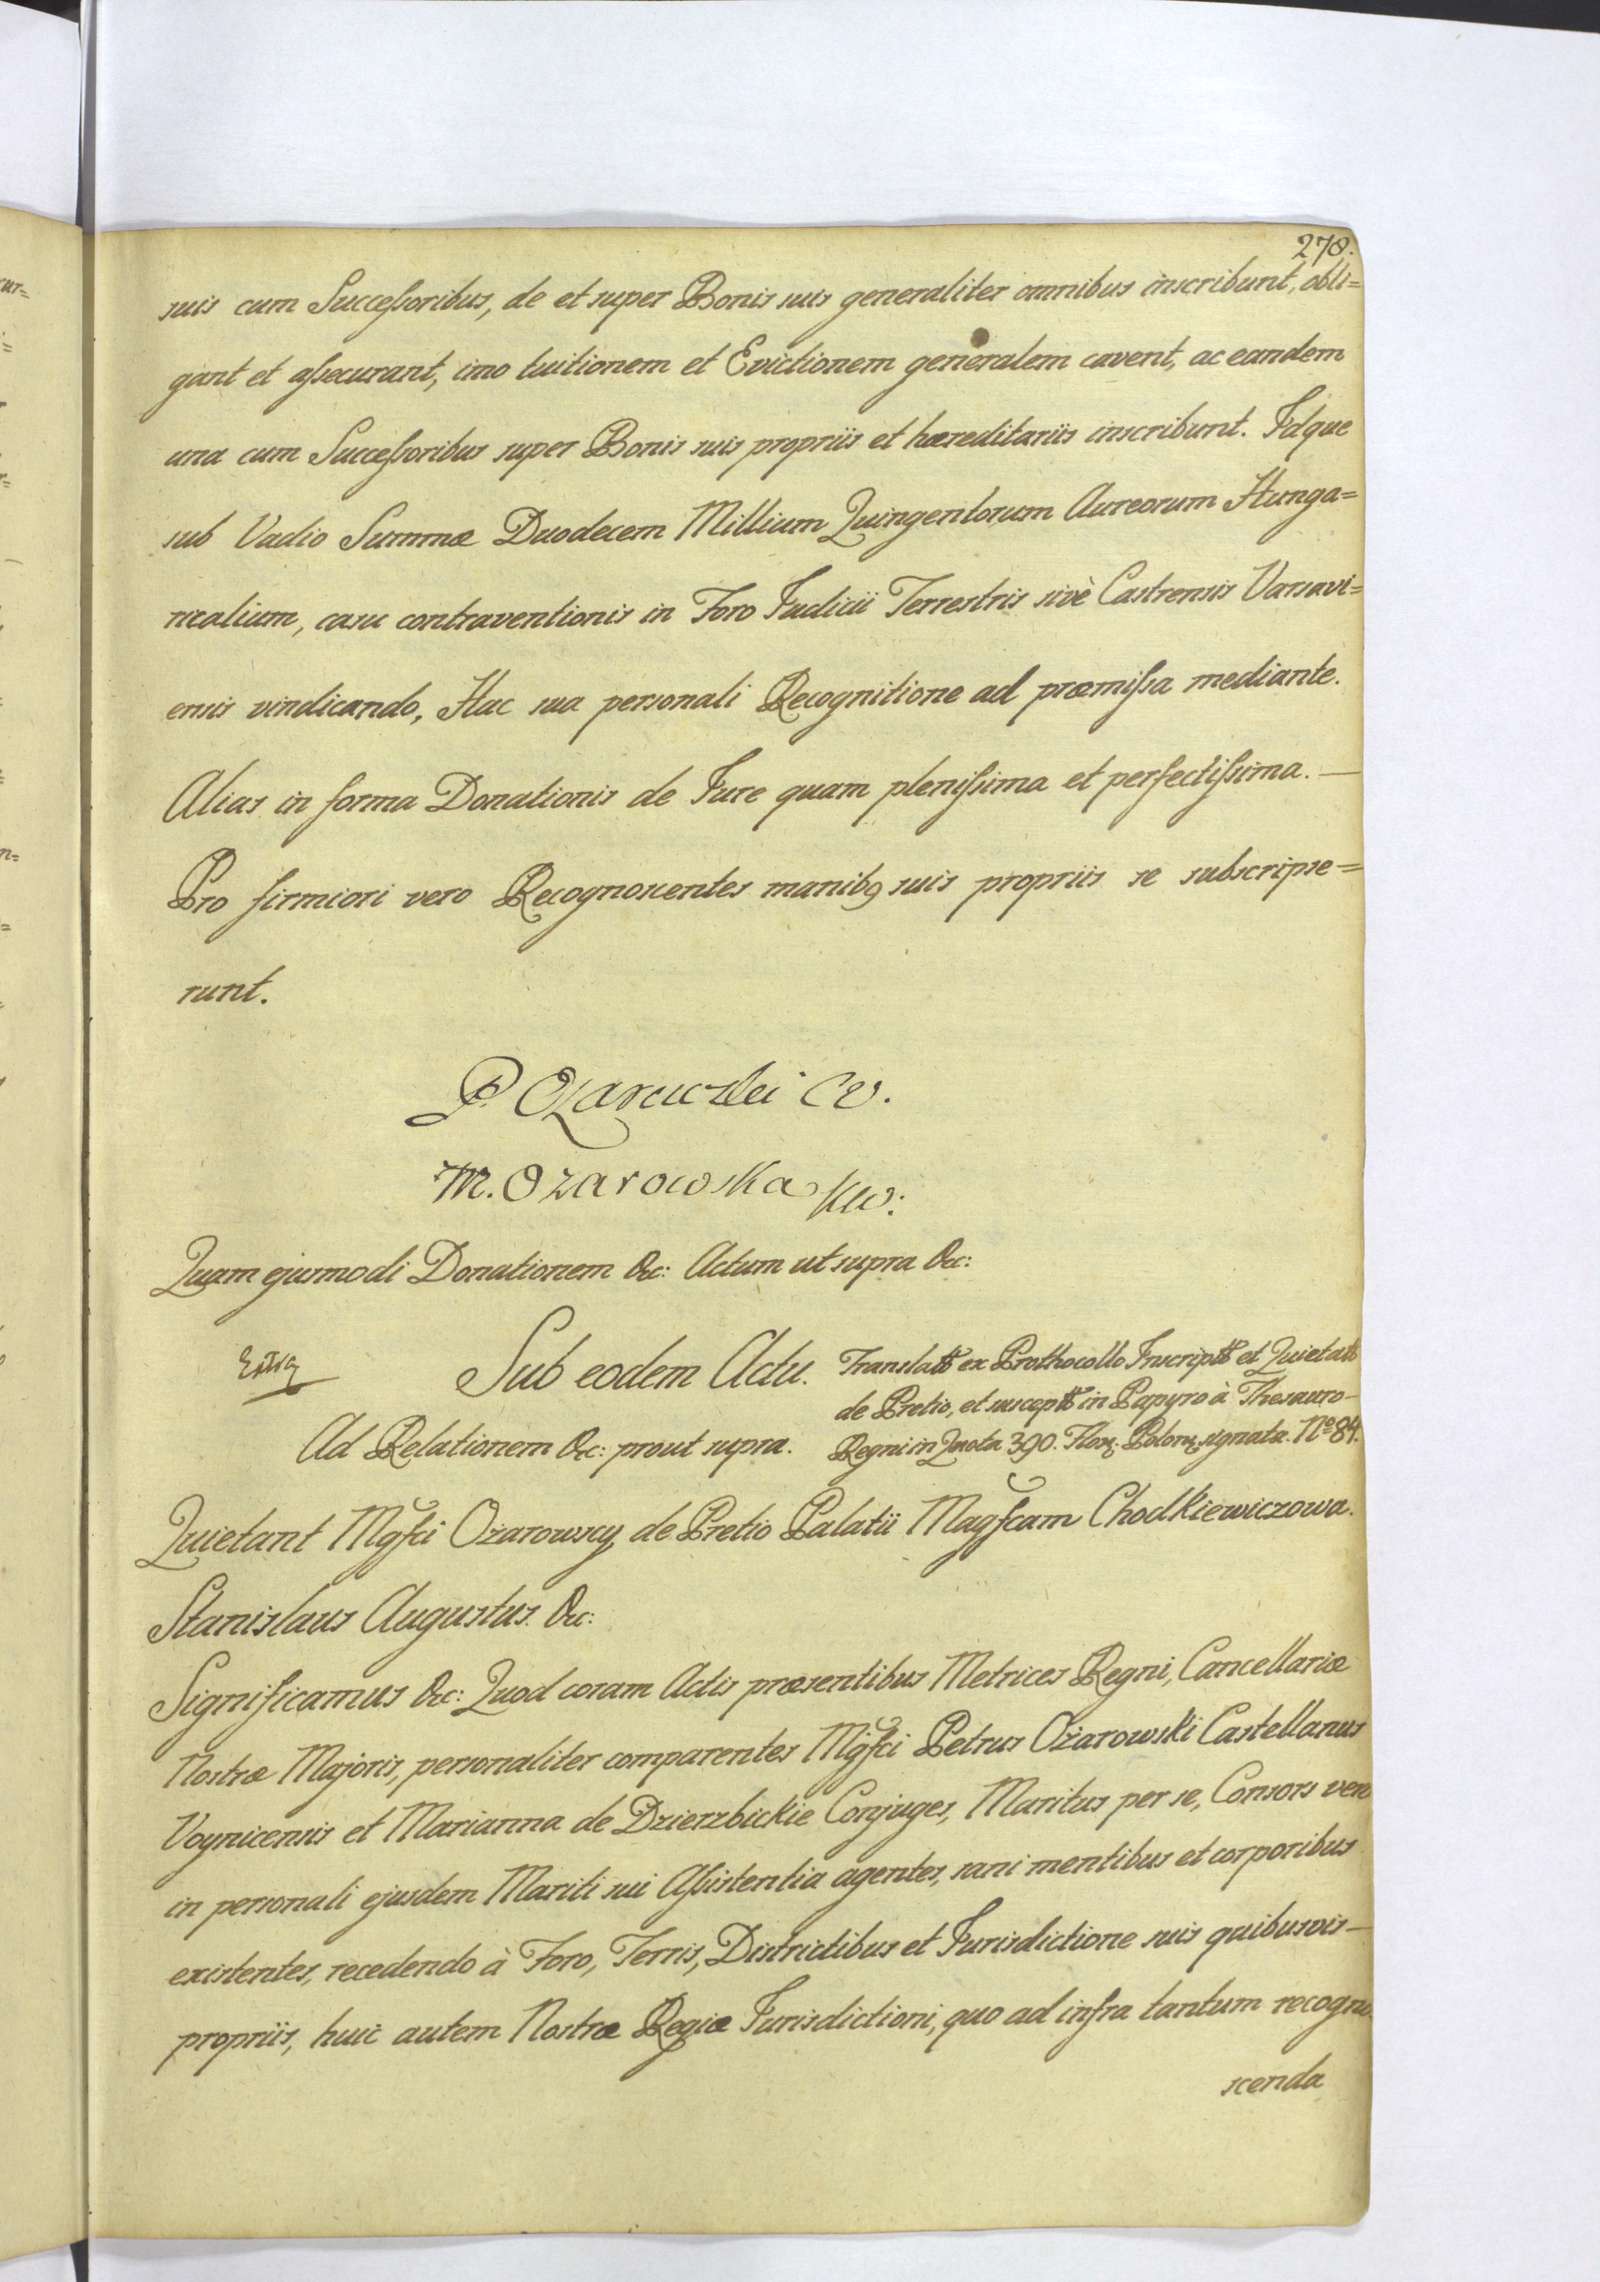 278.
suis cum Successoribus, de et super Bonis suis generaliter omnibus inscribunt, obli=
gant et assecurant, imo tuitionem et Evictionem generalem cavent, ac eandem
una cum Successoribus super Bonis suis propriis et hæreditariis inscribunt. Idque
sub Vadio Summæ Duodecem Millium Quingentorum Aureorum Hunga=
ricalium, casu contraventionis in Foro Judicii Terrestris sivè Castrensis Varsavi=
ensis vindicando, Hac sua personali Recognitione ad præmissa mediante.
Alias in forma Donationis de Jure quam plenissima et perfectissima. —
Pro firmiori vero Recognoscentes manibꝯ suis propriis se subscripse=
runt.
P. Ozarowski
M. Ozarowska KW:
Quam ejusmodi Donationem &c: Actum ut supra &c:
Sub eodem Actu.
Ad Relationem &c: prout supra.
Translatt ex Prothocollo Inscriptt et Quietatt
de Pretio, et susceptt in Papyro à Thesauro—
Regni in Quota 390. Flor: Polon: signata. Nº 84.
Quietant Mgfci Ożarowscy de Pretio Palatii Magfcam Chodkiewiczowa.
Stanislaus Augustus. &c:
Significamus &c: Quod coram Actis præsentibus Metrices Regni, Cancellariæ
Nostræ Majoris, personaliter comparentes Mgfci Petrus Ożarowski Castellanus
Voynicensis et Marianna de Dzierzbickie Conjuges, Maritus per se, Consors vero
in personali ejusdem Mariti sui Assistentia agentes, sani mentibus et corporibus
existentes, recedendo à Foro, Terris, Districtibus et Jurisdictione suis quibusvis—
propriis, huic autem Nostræ Regiæ Jurisdictioni, quo ad infra tantum recogno
scenda